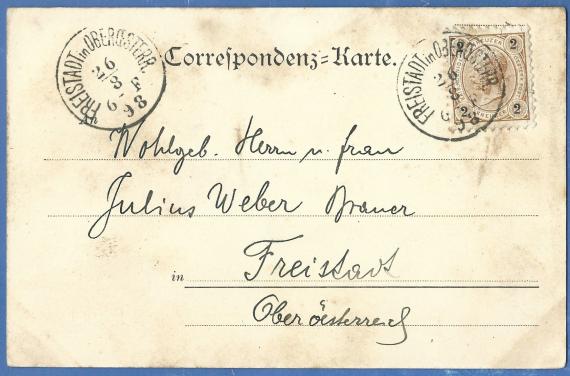 Correspondenz=Karte.
FREISTADT in OBERÖSTERR.
FREISTADT in OBERÖSTERR.
2
2
2
2
Wohlgeb. Herrn u. frau
Julius Weber Brauer
in Freistadt
Oberösterreich